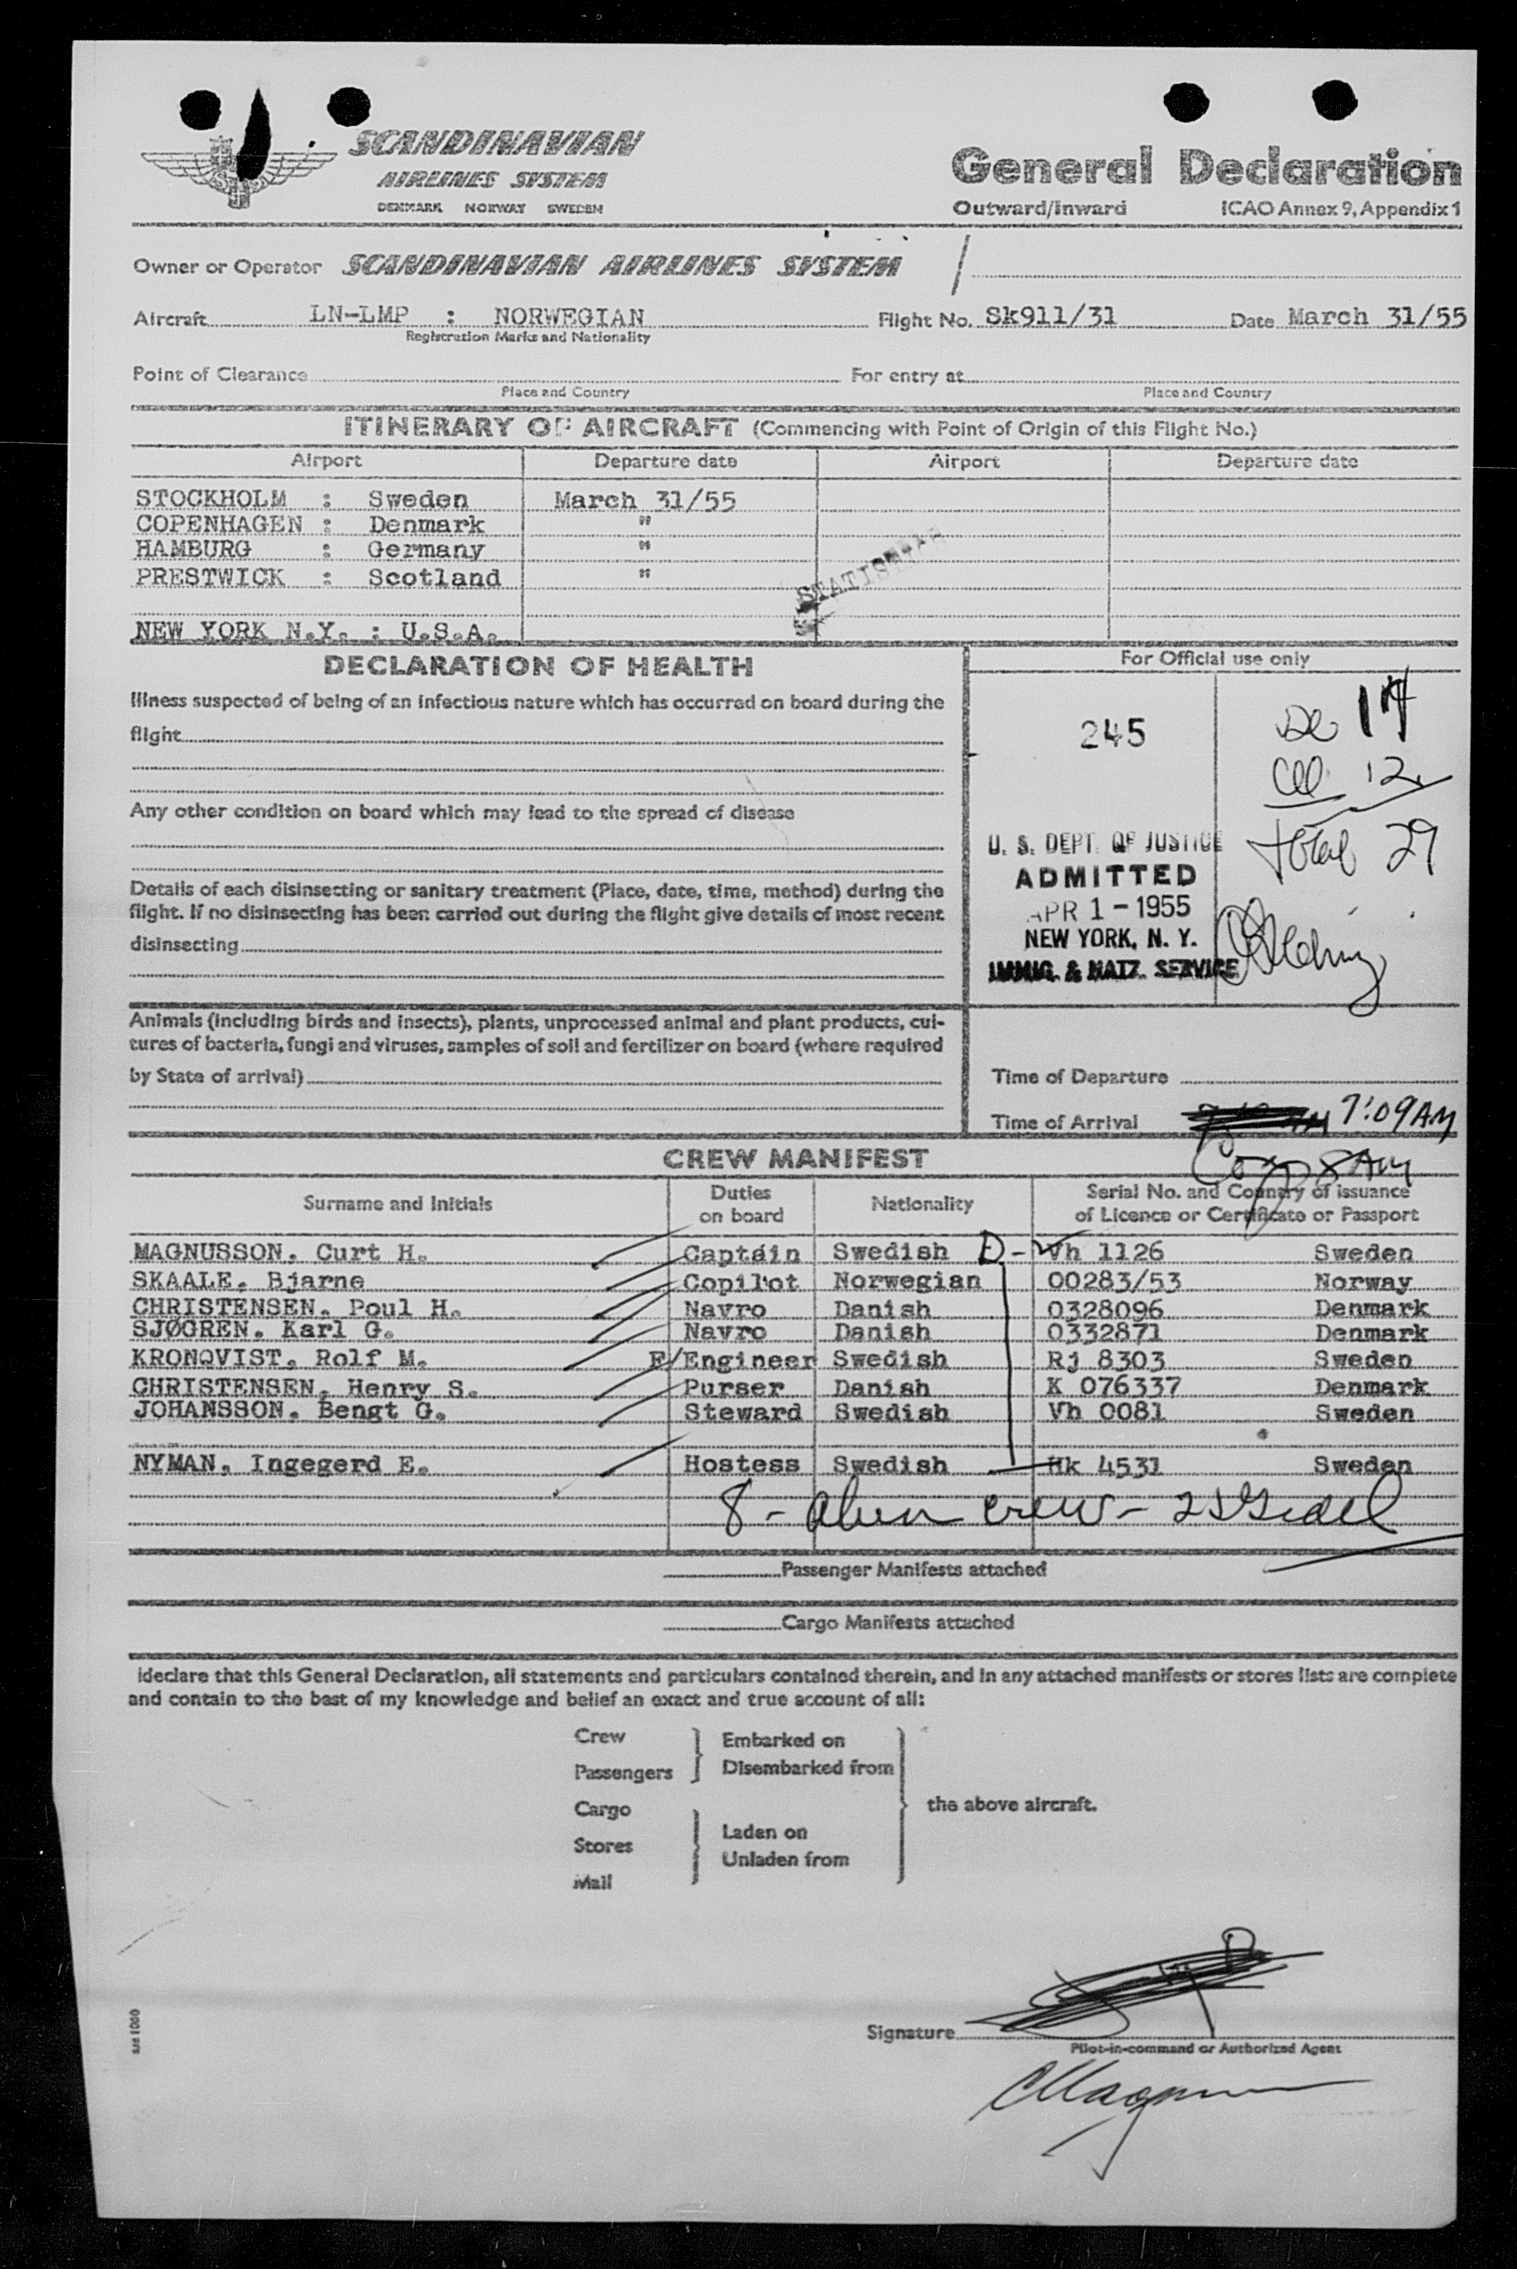 SCANDINAVIAN
AIRLINES SYSTEM
DENMARK NORWAY SWEDEN
General Declaration
Outward/Inward ICAO Annex 9, Appendix 1
Owner or Operator SCANDINAVIAN AIRLINES SYSTEM
Aircraft LN-LMP : NORWEGIAN Flight No. Sk911/31 Date March 31/55
Registration Marks and Nationality
Point of Clearance For entry at
Place and Country Place and Country
ITINERARY OF AIRCRAFT (Commencing with Point of Origin of this Flight No.)
Airport Departure date Airport Departure date
STOCKHOLM : Sweden March 31/55
COPENHAGEN : Denmark "
HAMBURG : Germany "
PRESTWICK : Scotland "
NEW YORK N.Y. : U.S.A.
DECLARATION OF HEALTH
Illness suspected of being of an infectious nature which has occurred on board during the
flight
Any other condition on board which may lead to the spread of disease
Details of each disinsecting or sanitary treatment (Place, date, time, method) during the
flight. If no disinsecting has been carried out during the flight give details of most recent
disinsecting
For Official use only
245
U. S. DEPT. OF JUSTICE
ADMITTED
APR 1 - 1955
NEW YORK, N. Y.
IMMIG. & NATZ. SERVICE
12
total 29
Animals (including birds and insects), plants, unprocessed animal and plant products, cul-
tures of bacteria, fungi and viruses, samples of soil and fertilizer on board (where required
by State of arrival)
Time of Departure
Time of Arrival 7:09 AM
8 AM
CREW MANIFEST
Surname and Initials Duties on board Nationality Serial No. and Country of issuance of Licence or Certificate or Passport
MAGNUSSON, Curt H. Captain Swedish D - Vh 1126 Sweden
SKAALE, Bjarne Copilot Norwegian 00283/53 Norway
CHRISTENSEN, Poul H. Navro Danish 0328096 Denmark
SJØGREN, Karl G. Navro Danish 0332871 Denmark
KRONQVIST, Rolf M. F/Engineer Swedish Rj 8303 Sweden
CHRISTENSEN, Henry S. Purser Danish K 076337 Denmark
JOHANSSON, Bengt G. Steward Swedish Vh 0081 Sweden
NYMAN, Ingegerd E. Hostess Swedish Hk 4531 Sweden
8 - alien crew -
Passenger Manifests attached
Cargo Manifests attached
I declare that this General Declaration, all statements and particulars contained therein, and in any attached manifests or stores lists are complete
and contain to the best of my knowledge and belief an exact and true account of all:
Crew
Passengers
Embarked on
Disembarked from
Cargo
Stores
Mail
Laden on
Unladen from
the above aircraft.
Signature
Pilot-in-command or Authorized Agent